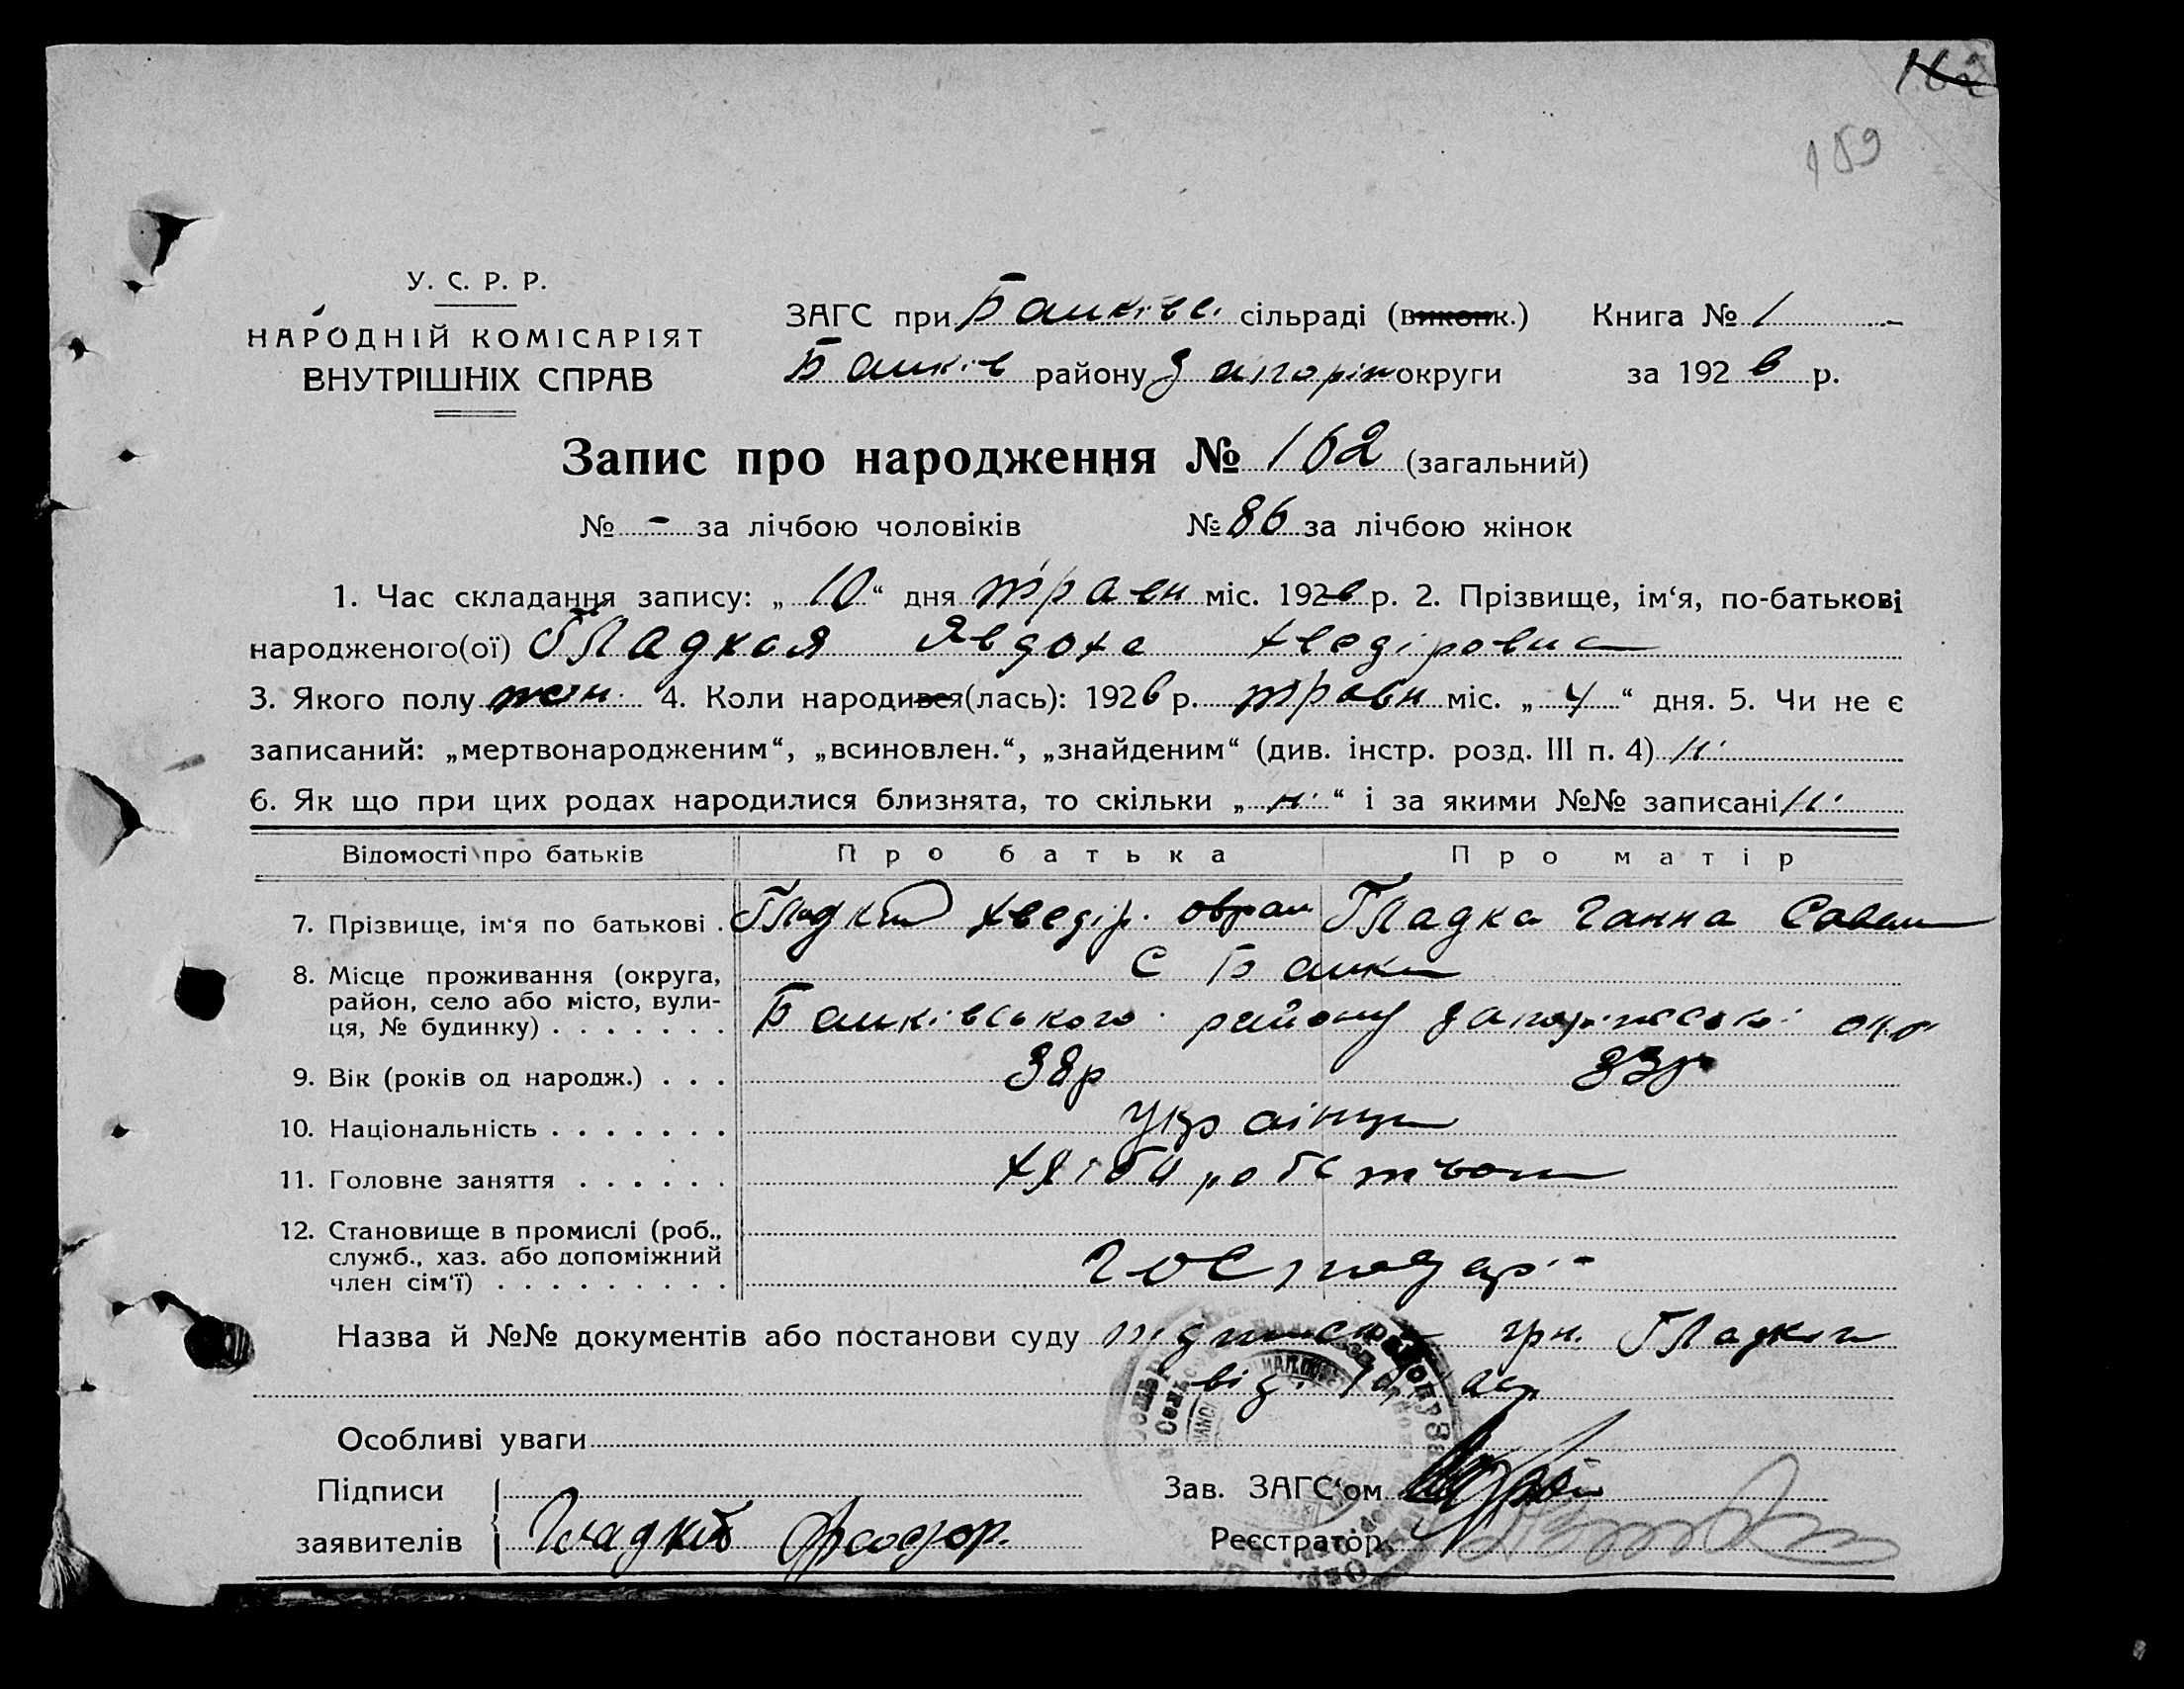 162
159
У. С. Р. Р.
НАРОДНІЙ КОМІСАРІЯТ
ВНУТРІШНІХ СПРАВ
ЗАГС при Балківс. сільраді (виконк.) Книга № 1
Балків району Запоріж округи за 1926 р.
Запис про народження № 162 (загальний)
№ - за лічбою чоловіків № 86 за лічбою жінок
1. Час складання запису: „10“ дня травн міс. 1926 р. 2. Прізвище, ім‘я, по-батькові
народженого(ої) Гладкая Явдоха Хведіровна
3. Якого полу жін. 4. Коли народився(лась): 1926 р. травн міс. „4“ дня. 5. Чи не є
записаний: „мертвонародженим“, „всиновлен.“, „знайденим“ (див. інстр. розд. III п. 4) ні
6. Як що при цих родах народилися близнята, то скільки „ні“ і за якими №№ записані ні
Відомості про батьків Про батька Про матір
7. Прізвище, ім‘я по батькові . Гладкий Хведір. Гладка Ганна
8. Місце проживання (округа, с Балки
район, село або місто, вули-
ця, № будинку) . . . . . . . Балківського району Запоріжської окр
9. Вік (років од народж.) . . . 38р 33р
10. Національність . . . . . . . українці
11. Головне заняття . . . . . . хліборобство
12. Становище в промислі (роб.,
служб., хаз. або допоміжний
член сім‘ї) . . . . . . . . . господарі
Назва й №№ документів або постанови суду грн. Гладкого
від
Особливі уваги
Підписи Зав. ЗАГС‘ом
заявителів Гладкій Феодор. Реєстратор